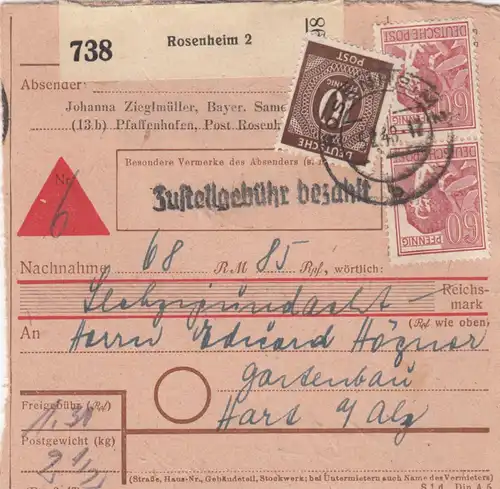 738 Rosenheim 2
DEUTSCHE POST
DEUTSCHE POST
Absender:
Johanna Zieglmüller, Bayer. Same
(13b) Pfaffenhofen, Post Rosenh
60 PFENNIG
Besondere Vermerke des Absenders (s.
Zustellgebühr bezahlt
Nr.
6
Nachnahme 68 RM 85 Rpf, wörtlich:
Sechzigundacht Reichs-
mark
(Rpf wie oben)
An Herrn Eduard Högner
Gartenbau
Hart a/Alz
Freigebühr (Rpf)
Postgewicht (kg)
(Straße, Haus-Nr., Gebäudeteil, Stockwerk; bei Untermietern auch Name des Vermieters)
Din A 6